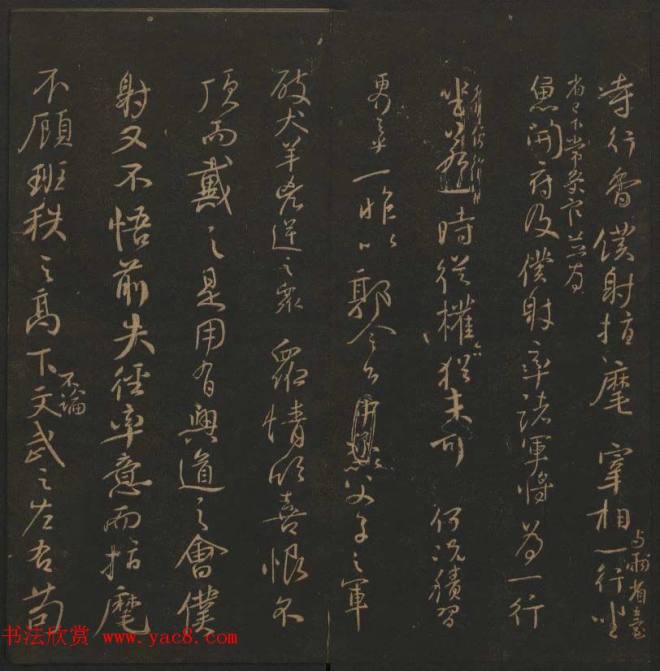 寺行香僕射指麾 宰相与兩省臺
省已下常參官並為一行坐
魚開府及僕射率諸軍將為一行
坐若一時從權猶未可 何況積習
一昨以郭令公父子之軍
破犬羊凶逆之眾 眾情欣喜恨不
頂而戴之是用有興道之會僕
射又不悟前失徑率意而指麾
不顧班秩之高下不論文武之左右苟
书法欣赏 www.yac8.com